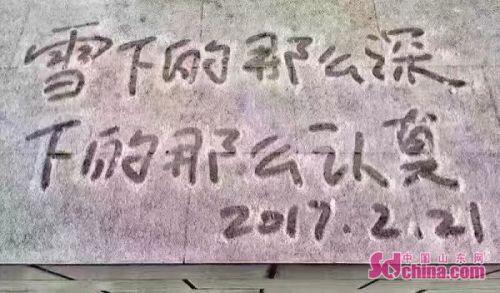 雪下的那么深
下的那么认真
2017.2.21
中国山东网
sdchina.com